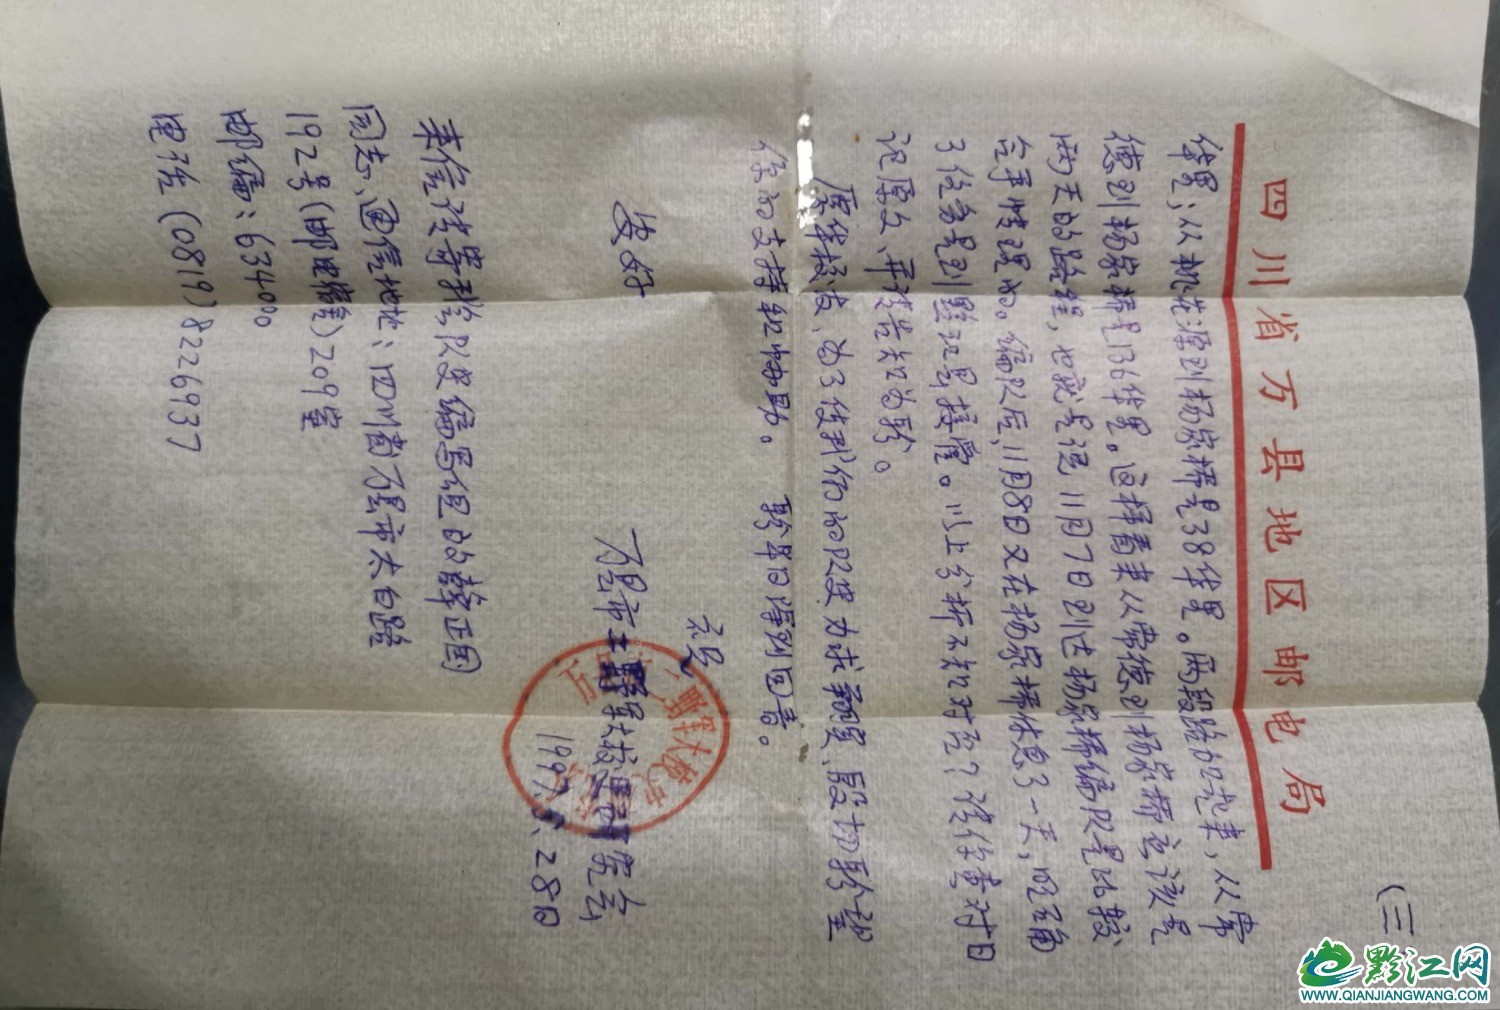 (三)
四川省万县地区邮电局
华里；从桃花源到杨家桥是38华里。两段路加起来，从常
德到杨家桥是136华里。这样看来从常德到杨家桥应该是
两天的路程，也就是说11月7日到达杨家桥编队是比较
合乎情理的。编队后，11月8日又在杨家桥休息了一天，明确
了任务是到黔江县接管。以上分析不知对否？请你查对日
记原文，再请告知为盼。
唐华校友，为了使我们的队史力求翔实，殷切盼望
你的支持和协助。 盼早日得到回音。
祝
安好
万县市二野军大校史研究会
1997.5.28日
来信请寄我会队史编写组的薛正国
同志，通信地址：四川省万县市太白路
192号(邮电宿舍)209室
邮编：634000
电话(0819)8226937
黔江网
WWW.QIANJIANGWANG.COM